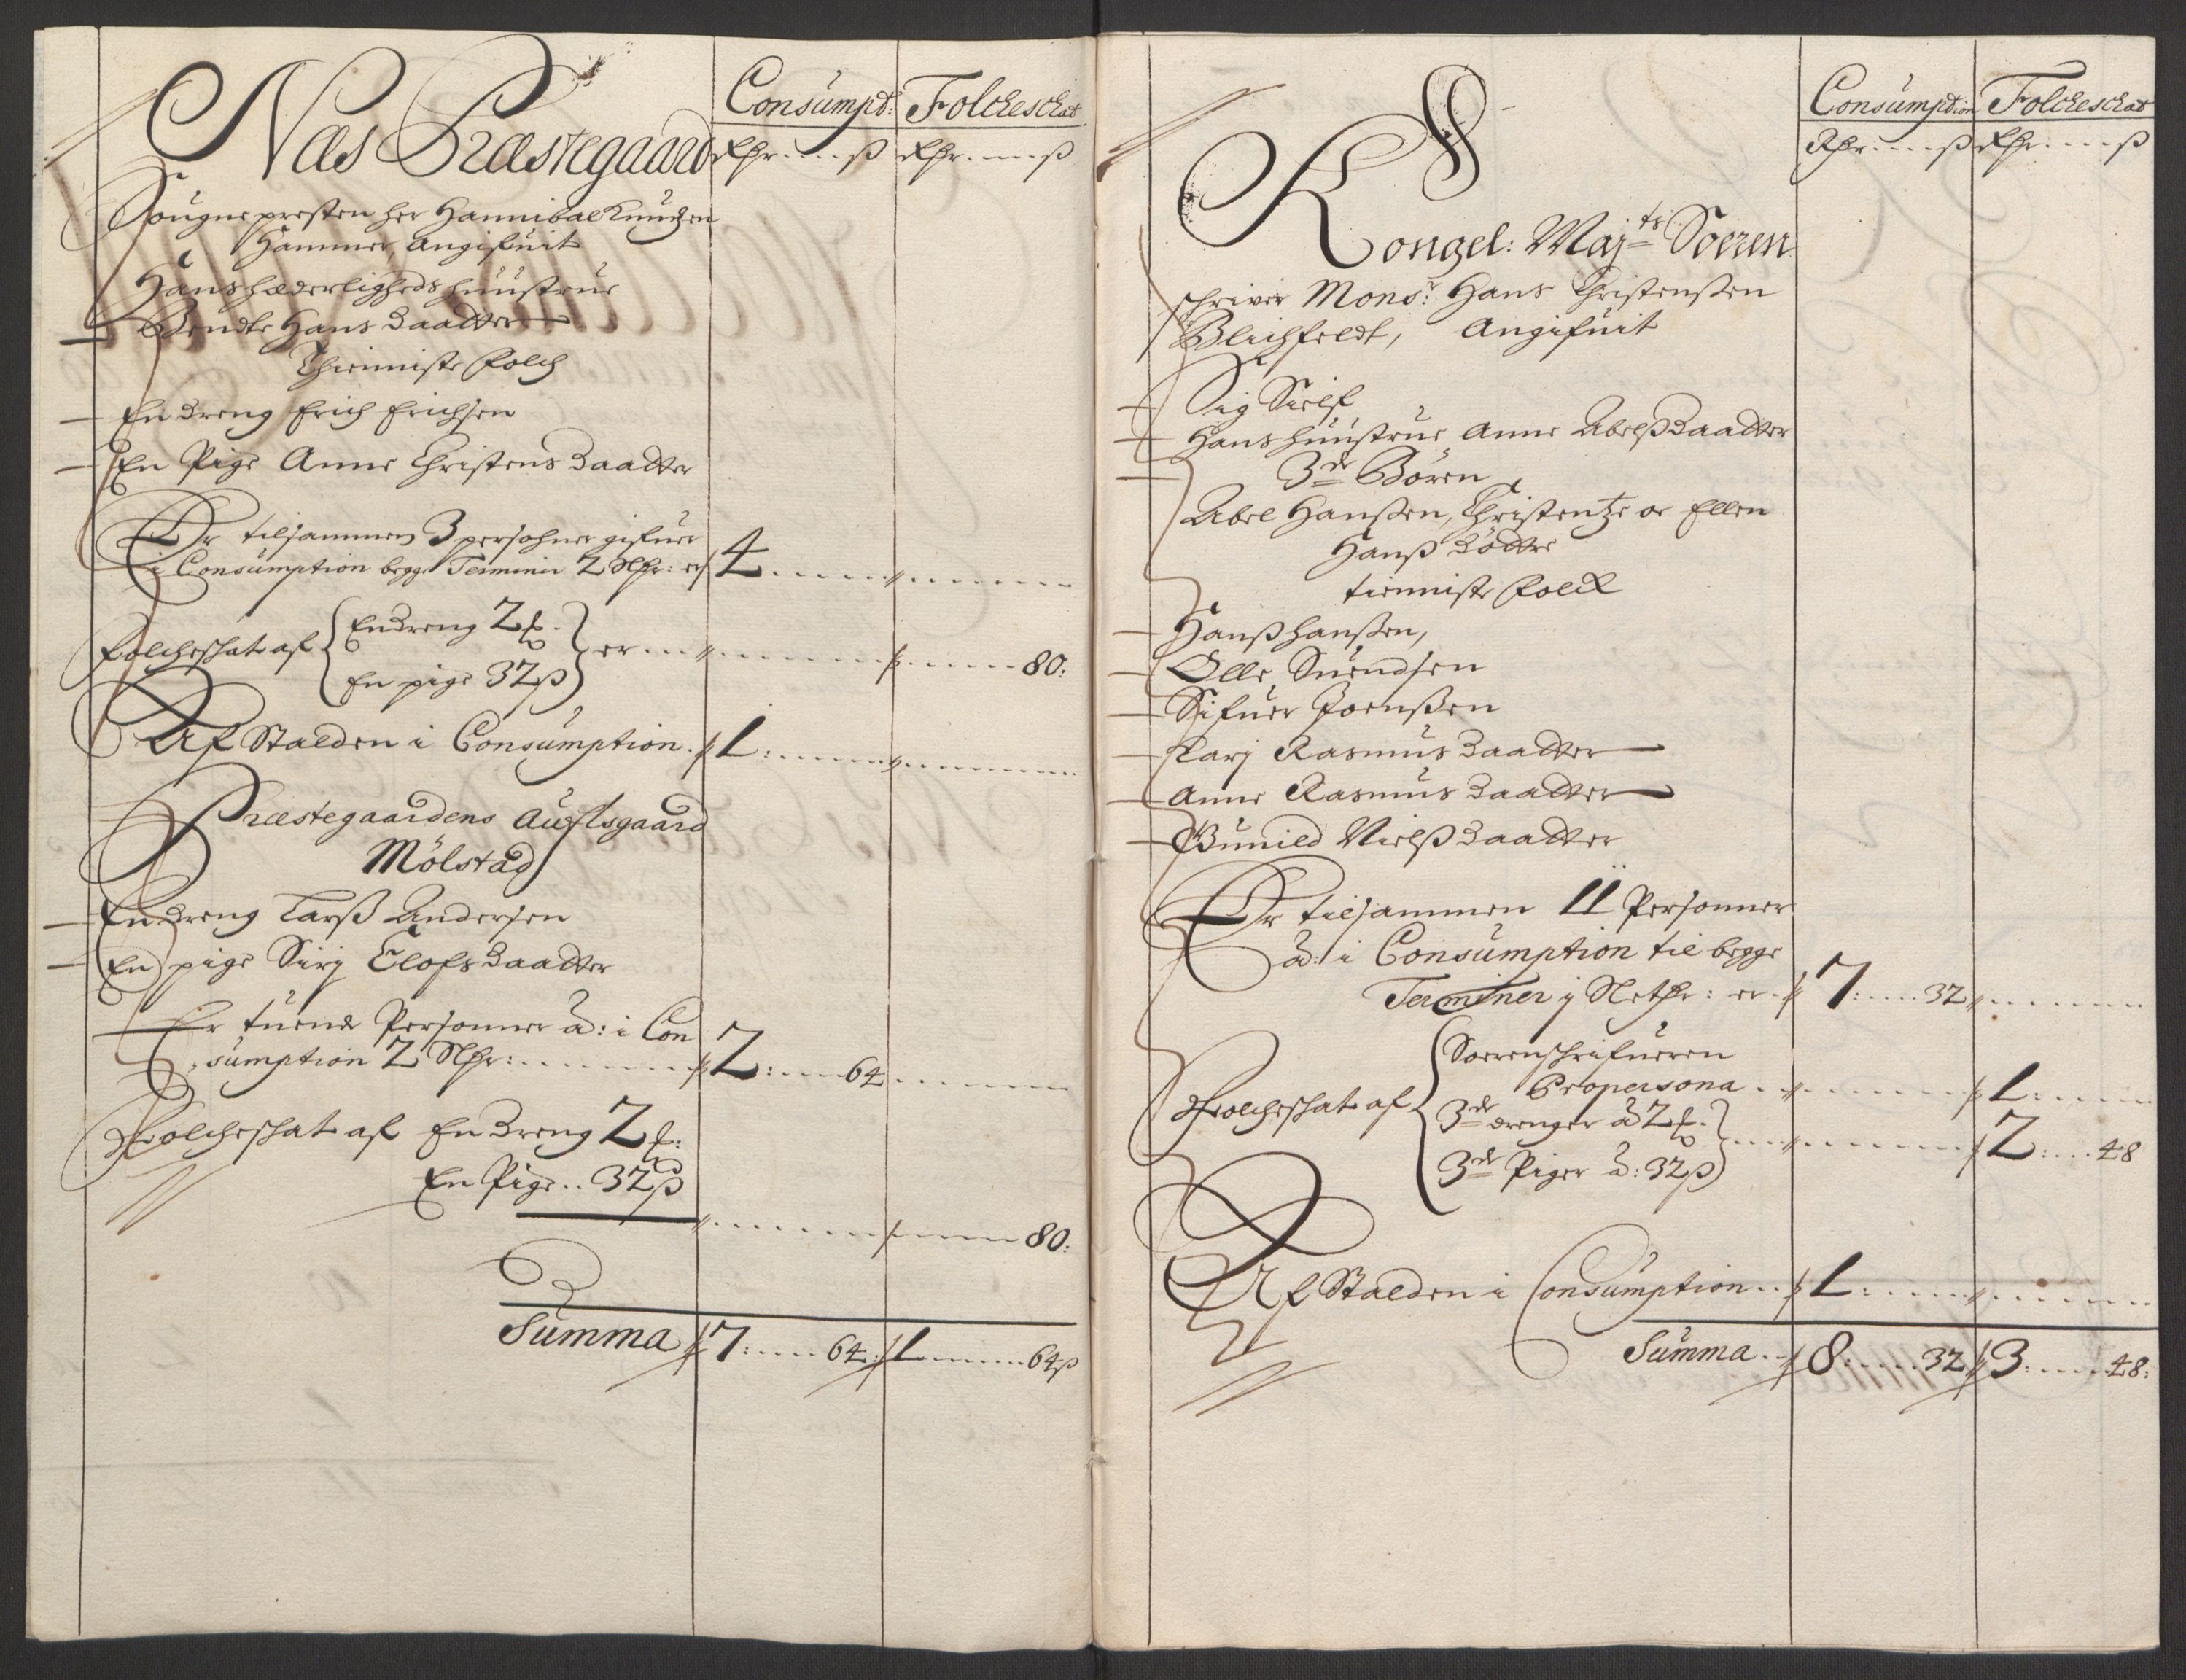 Consumpt: Folcheschat
Næs Præstegaard Rhr....ß Rhr....ß
Sougnepresten her Hannibal Knudsen
Hammer, Angifuit
Hans hæderligheds huustrue
Bendte Hans daatter
Thienniste folch
En dreng Erich Erichsen
En Pige Anne Christens daatter
Er tilsammen 3 persohner gifuer
i Consumption begge Terminer 2 Slhr: er 4
Folcheschat af En dreng 2 ₰.
En pige 32 ß er 80:
Af Stalden i Consumption. 1:
Præstegaardens Auflsgaard
Mölstad
En dreng Larß Andersen
En pige Siri Elofs daatter
Er tuende Personner â: i Con
sumption 2 Slhr: 2: 64
Folcheschat af En dreng 2 ₰:
En Pige.. 32 ß
80:
Summa 7: 64: 1 64 ß
Consumption Folcheschat
Rhr....ß Rhr....ß
Kongel: Maj.ts Soeren
schriver Mons.r Hans Christenßen
Blichfeldt, Angifuit
Sig Sielf
Hans huustrue Anne Abelß daatter
3de Börn
Abel Hanßen, Christentze oc Ellen
Hanß dötter
tienniste folck
Hanß Hanßen,
Olle Suendsen
Sifuer Joenßen
Karj Rasmus daatter
Anne Rasmus daatter
Gunild Nielß daatter
Er tilsammen 11 Personner
â: i Consumption til begge
Terminer j Slethr: er. 7: 32
Folcheschat af Soerenschrifueren
Propersona 1:
3de drenger â 2 ₰.
3de Piger â: 32 ß 2: 48
Af Stalden i Consumption.. 1:
Summa 8: 32 3: 48: